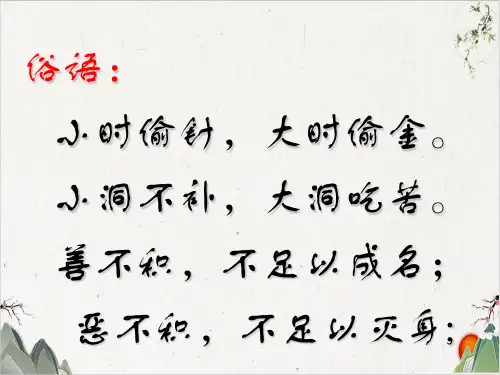 俗语：
小时偷针，大时偷金。
小洞不补，大洞吃苦。
善不积，不足以成名；
恶不积，不足以灭身；